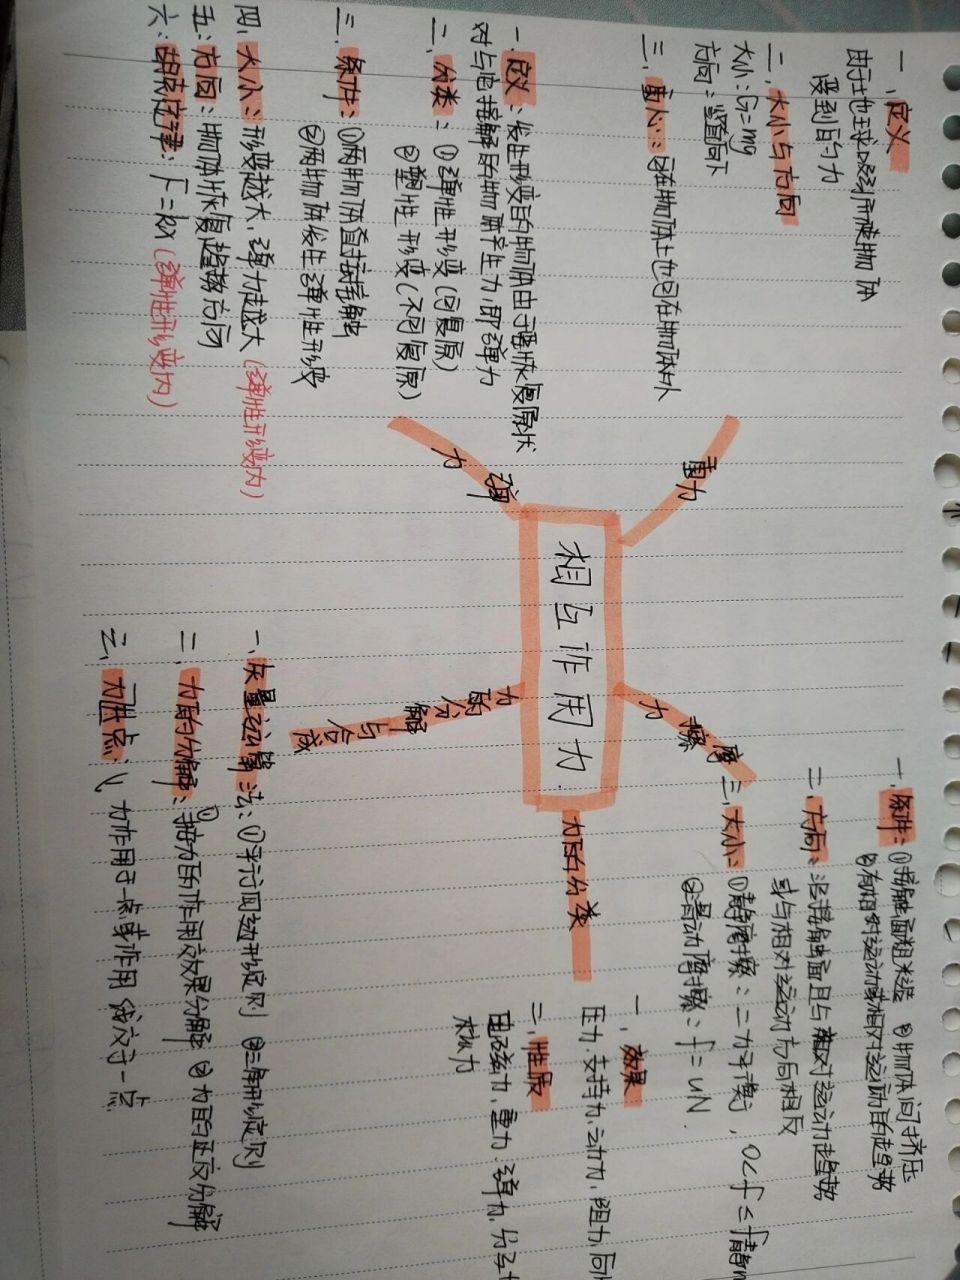 相互作用力
重力
一、定义
由于地球吸引而使物体
受到的力
二、大小与方向
大小:G=mg
方向:竖直向下
三、重心:可在物体上也可在物体外
弹力
一、定义:发生形变的物体由于要恢复原状
对与它接触的物体产生力,即弹力
二、分类:①弹性形变(可复原)
②塑性形变(不可复原)
三、条件:①两物体直接接触
②两物体发生弹性形变
四、大小:形变越大,弹力越大(弹性形变内)
五:方向:物体恢复趋势方向
六:胡克定律:F=kx(弹性形变内)
摩擦力
一、条件:①接触面粗糙 ②物体间挤压
③有相对运动或相对运动的趋势
二、方向:沿接触面且与相对运动趋势
或与相对运动方向相反
三、大小:①静摩擦:二力平衡,0<f≤f静m
②滑动摩擦:f=uN.
力的分类
一、效果
压力、支持力、动力、阻力、向
二、性质
电磁力、重力、弹力、分子
核力
力的分解与合成
一、矢量运算法:①平行四边形定则 ②三角形定则
二、力的分解:①按力的作用效果分解 ②力的正交分解
三、力共点:力作用于一点或作用线交于一点